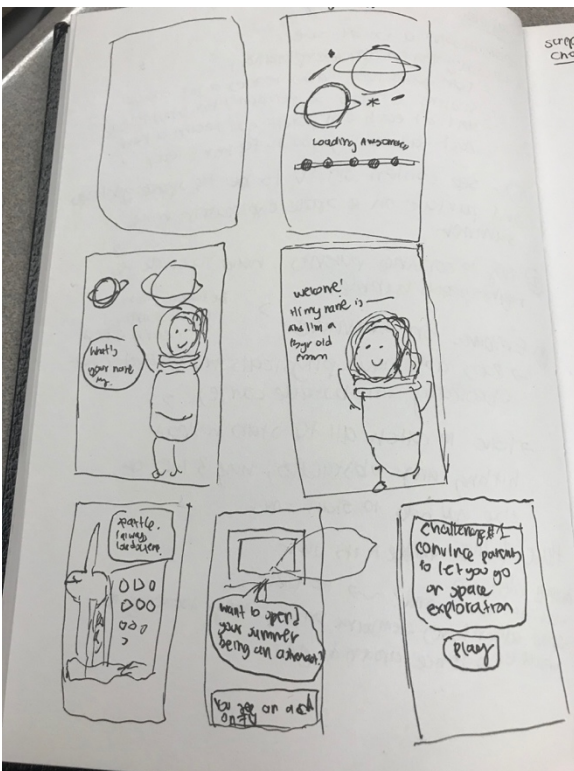 Loading Awesomeness
What's
your name
Welcome!
Hi my name is
and I'm a
yr old
from
Seattle.
want to spend
your summer
being an astronaut?
You see an ad
challenge #1
convince parents
to let you go
on space
exploration
play